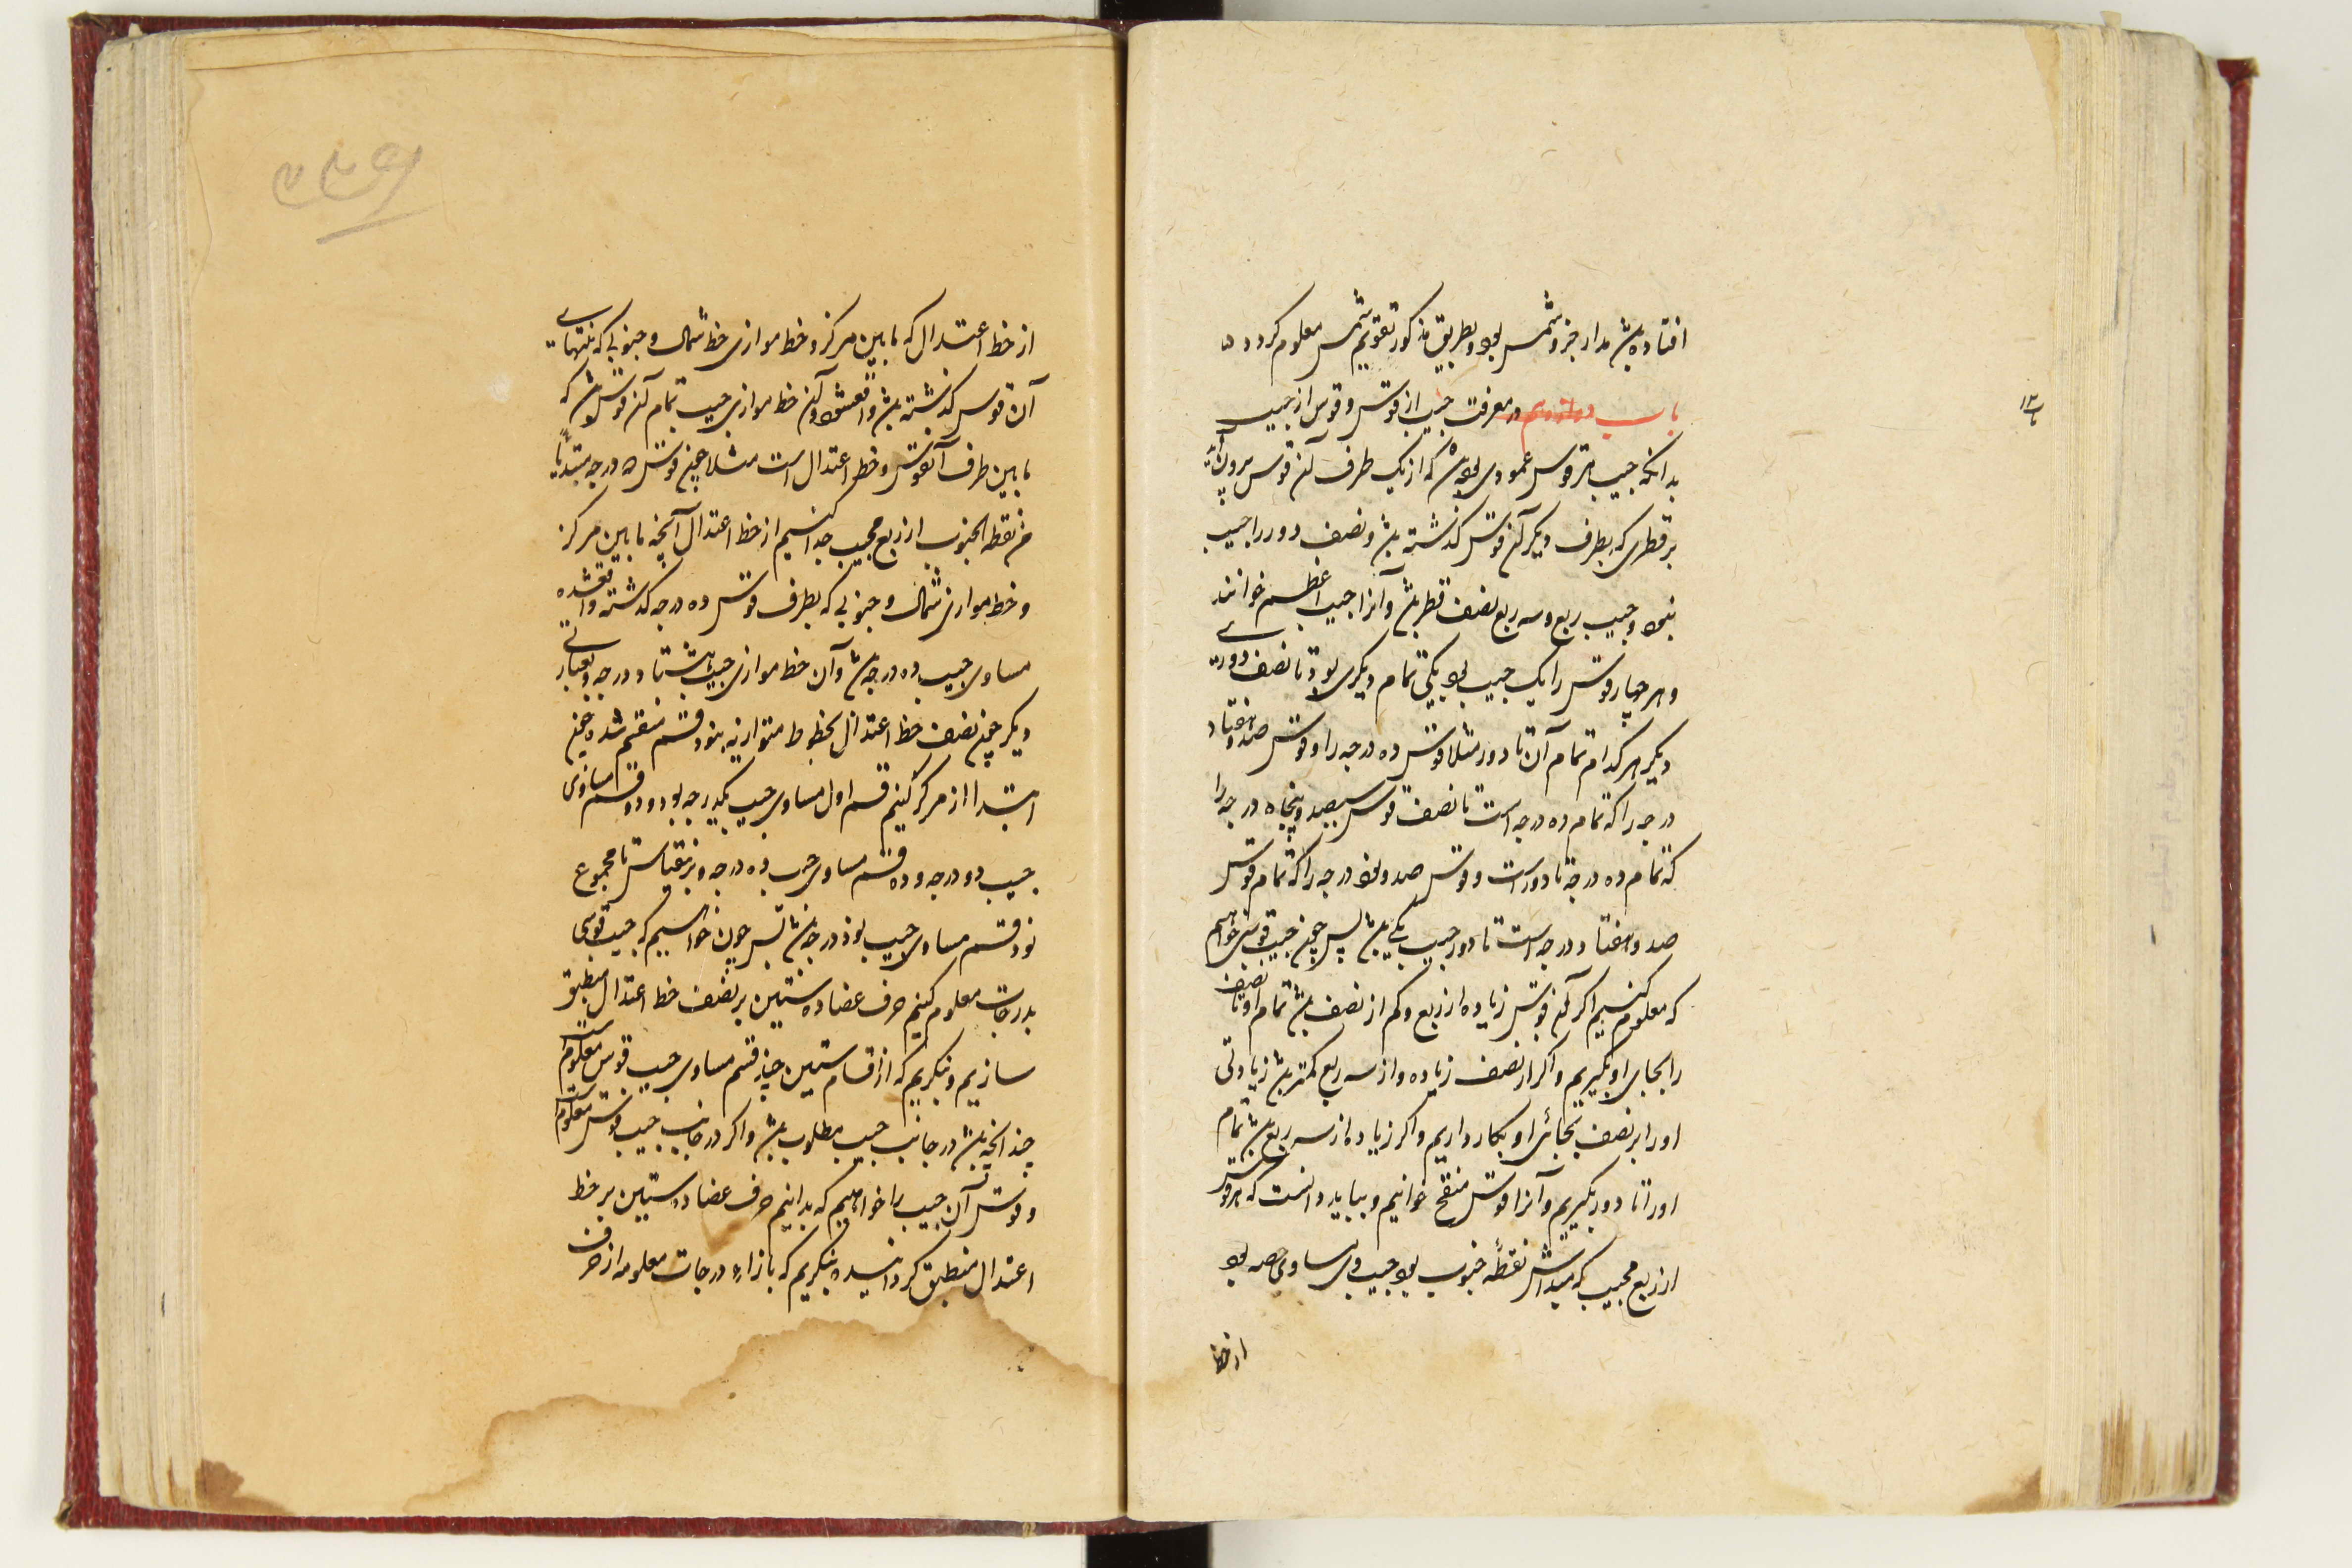 افتاده باشد مدار جزو شمس بود و بطریق مذکور تقویم شمس معلوم کردد ٥
باب دوازدهم در معرفت جیب از قوس و قوس از جیب
بدانکه جیب هر قوس عمودی بود که از یک طرف آن قوس بیرون آید
بر قطری که بطرف دیکر آن قوس کذشته باشد و نصف دور را جیب
نبود و جیب ربع و سه ربع نصف قطر باشد و آنرا جیب اعظم خوانند
و هر چهار قوس را یک جیب بود یکی تمام دیکری بود تا نصف دور
دیکر هر کدام تمام آن تا دور مثلا قوس ده درجه را و قوس صد و هفتاد
درجه را که تمام ده درجه است تا نصف قوس سیصد و پنجاه درجه را
که تمام ده درجه تا دور است و قوس صد و نود درجه را که تمام قوس
صد و هفتاد درجه است تا دور جیب یکی باشد پس چون جیب قوسی خواهیم
که معلوم کنیم اکر آن قوس زیاده از ربع و کم از نصف باشد تمام او تا نصف
را بجای او بگیریم و اکر از نصف زیاده و از سه ربع کمتر باشد زیادتی
او را بر نصف بجائی او بکار داریم و اکر زیاده از سه ربع باشد تمام
او را تا دور بکیریم و آنرا قوس منقح خوانیم و بباید دانست که هر قوس
از ربع مجیب که مبداش نقطهٔ جنوب بود جیب وی مساوی حصه بود
از خط
از خط اعتدال که مابین مرکز و خط موازی خط شمال و جنوبی که بنتهای
آن قوس کذشته باشد واقع شود و آن خط موازی جیب تمام آن قوس باشد که
مابین طرف آنقوس و خط اعتدال است مثلا چون قوس ده درجه مبتدئا
من نقطه الجنوب از ربع مجیب جدا کنیم از خط اعتدال آنچه مابین مرکز
و خط موازی شمال و جنوبی که بطرف قوس ده درجه کذشته واقع شده
مساوی جیب ده درجه باشد و آن خط موازی جیب هشتاد درجه و بعبارتی
دیکر چون نصف خط اعتدال بخطوط متوازیه بنود قسم منقسم شده چون
ابتدا از مرکز کنیم قسم اول مساوی جیب یکدرجه بود و دو قسم مساوی
جیب دو درجه و ده قسم مساوی جیب ده درجه و برینقیاس تا مجموع
نود قسم مساوی جیب نود درجه باشد پس چون خواهیم که جیب قوسی
بدرجات معلوم کنیم حرف عضاده ستین بر نصف خط اعتدال منطبق
سازیم و بنکریم که از اقسام ستین چند قسم مساوی جیب قوس معلوم است
چندانچه باشد در جانب جیب مطلوب باشد و اکر درجات جیب قوس معلوم است
و قوس آن جیب را خواهیم که بدانیم حرف عضاده ستین بر خط
اعتدال منطبق کردانیده بنکریم که بازاء درجات معلومه از حرف